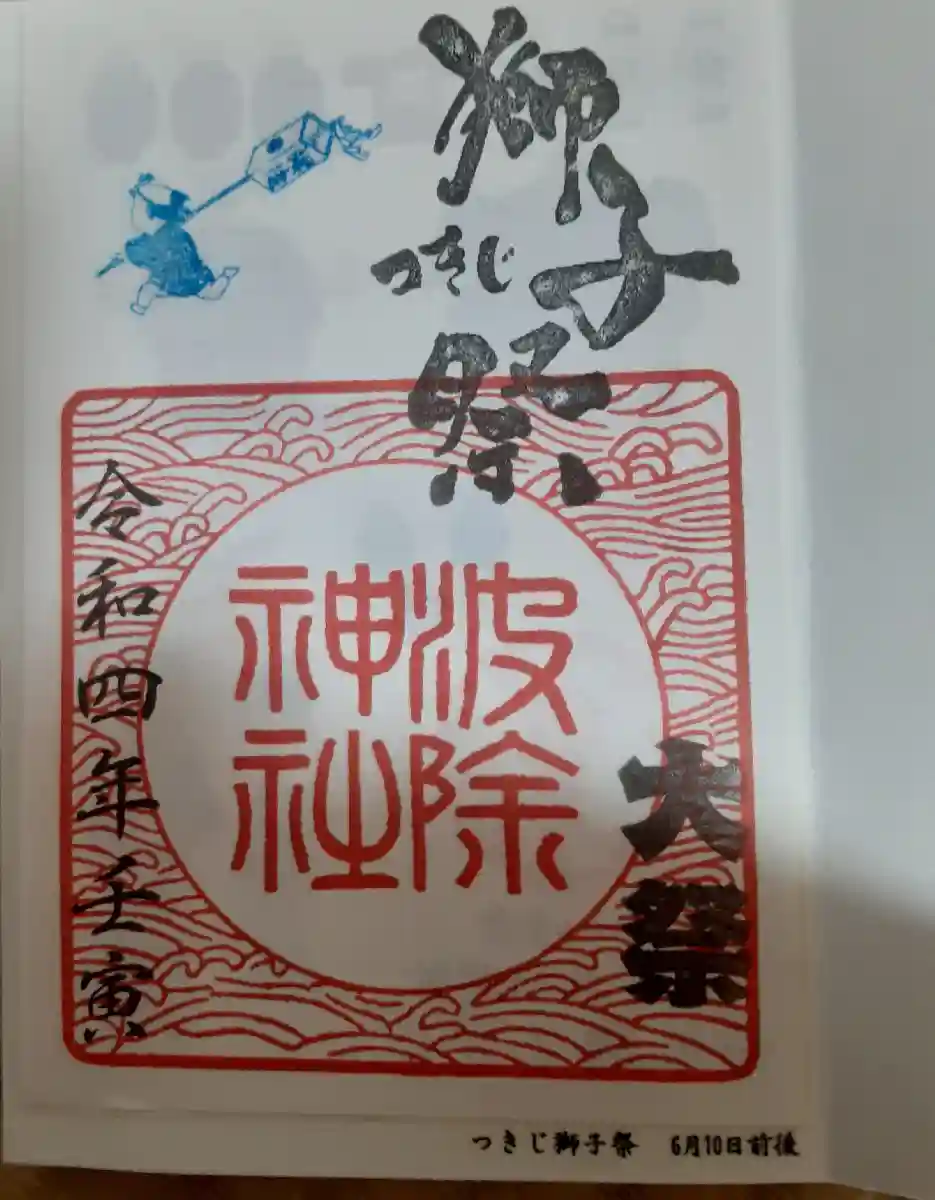 つきじ
獅子祭
大祭
波除
神社
令和四年壬寅
つきじ獅子祭 6月10日前後